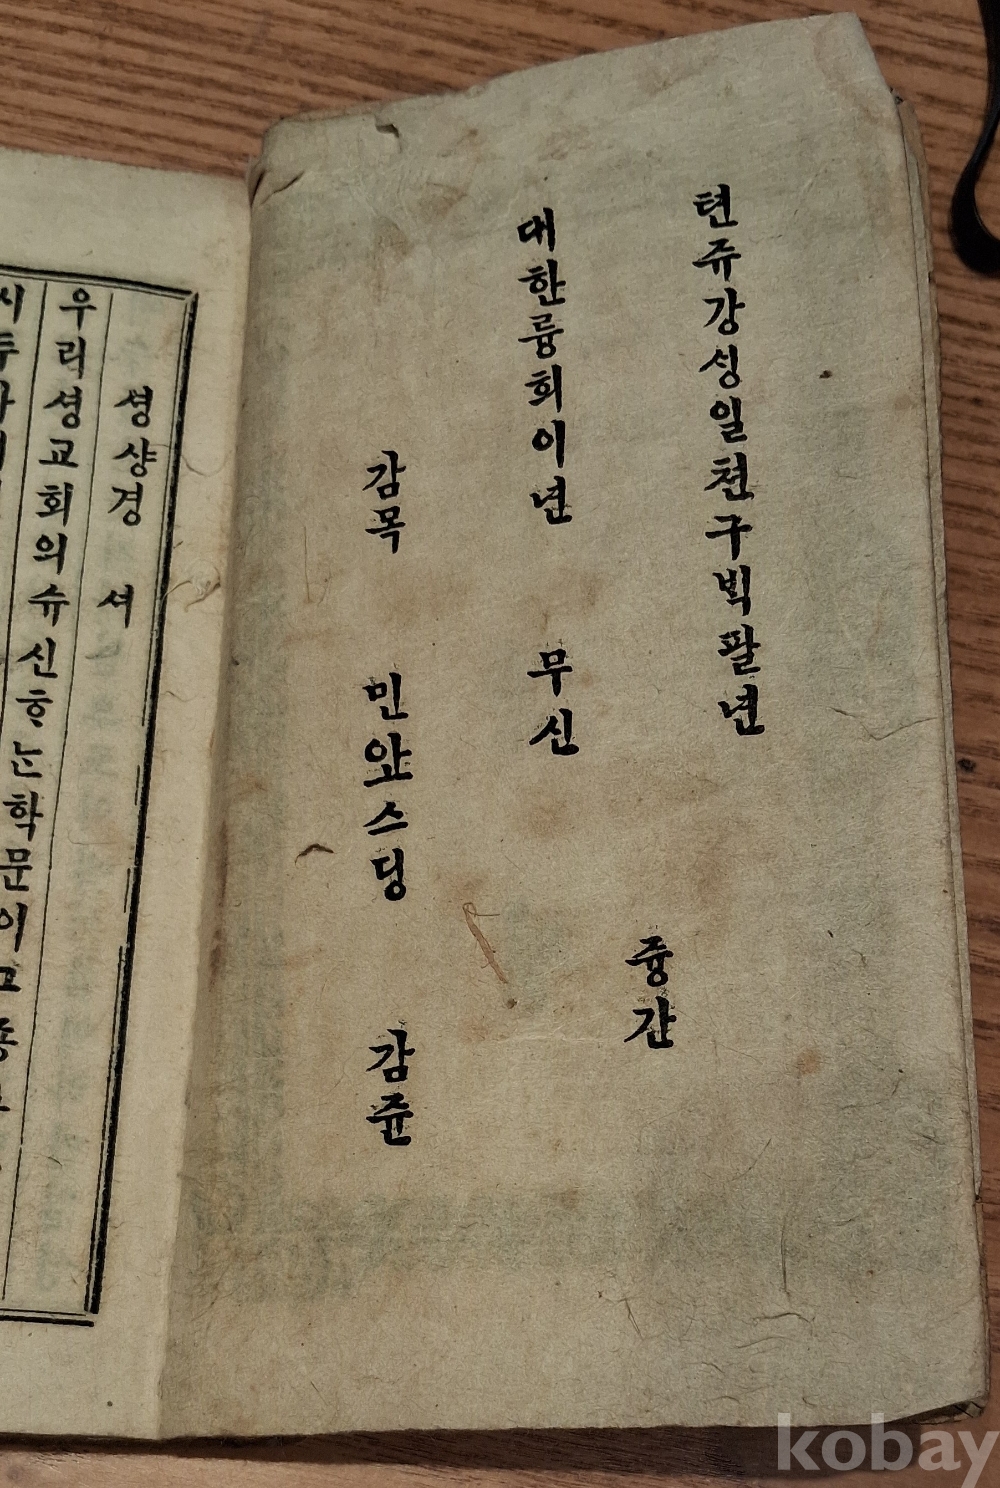 텬쥬강싱일쳔구빅팔년
즁간
대한륭희이년 무신
감목 민안스딩 감쥰
셩샹경 셔
우리셩교회의슈신ᄒᆞᄂᆞᆫ학문이고
kobay